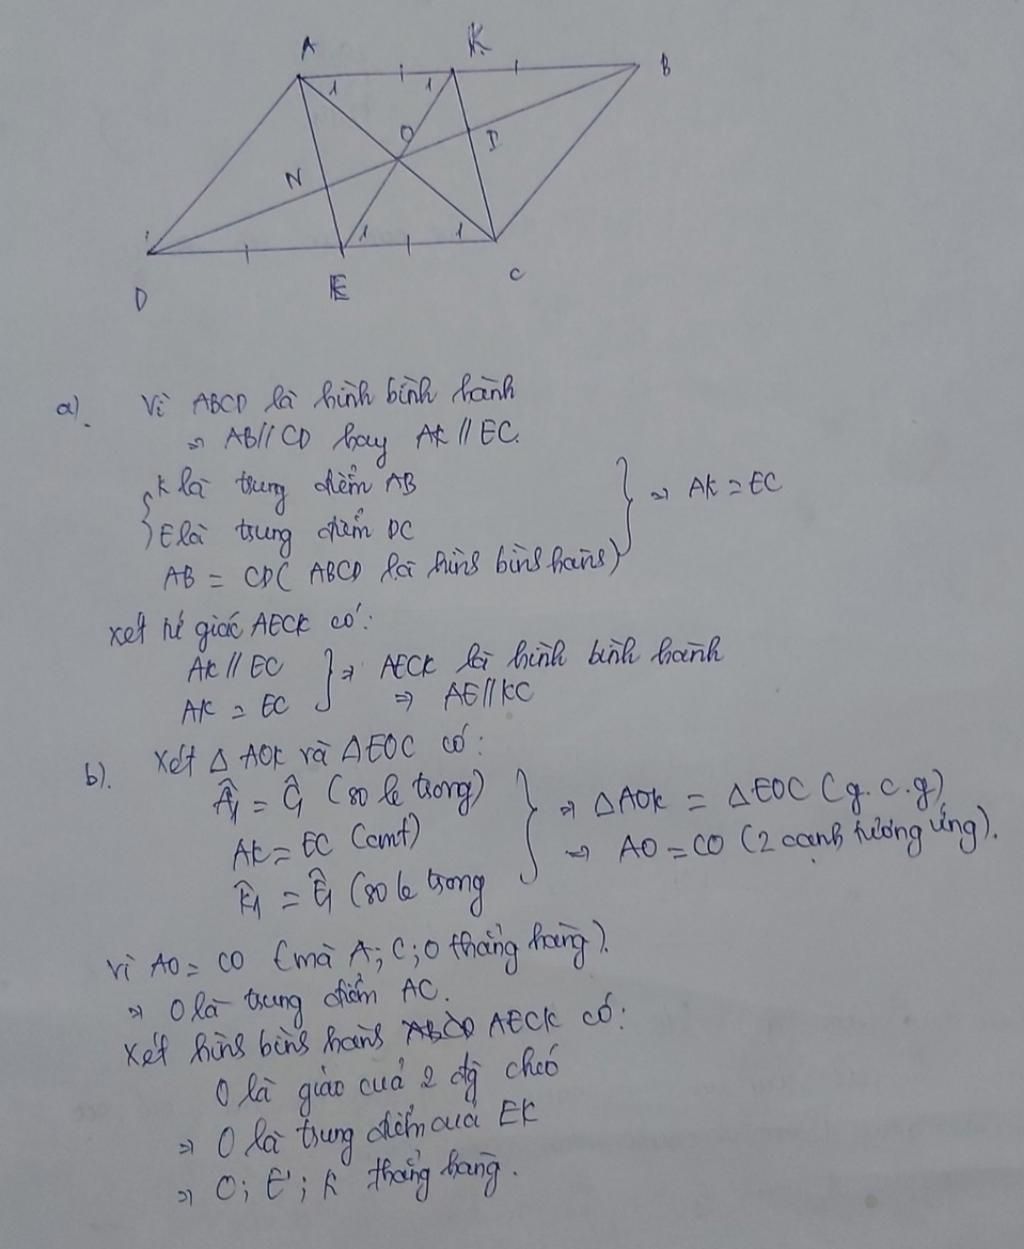 A K B
1 1
O I
N
1 1
D E C
a). Vì ABCD là hình bình hành
=> AB // CD hay AK // EC.
{ K là trung điểm AB
E là trung điểm DC } => AK = EC
AB = CD ( ABCD là hình bình hành)
xét tứ giác AECK có:
AK // EC } => AECK là hình bình hành
AK = EC => AE // KC
b). xét Δ AOK và Δ EOC có:
Â1 = Ĉ1 (so le trong) } => Δ AOK = Δ EOC (g.c.g)
AK = EC (cmt) => AO = CO (2 cạnh tương ứng).
K̂1 = Ê1 (so le trong
Vì AO = CO (mà A; C; O thẳng hàng).
=> O là trung điểm AC.
xét hình bình hành AECK có:
O là giao của 2 đg chéo
=> O là trung điểm của EK
=> O; E; K thẳng hàng.